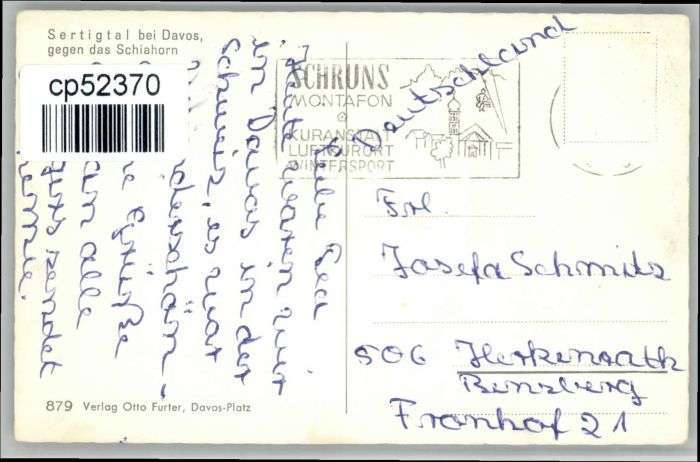 Sertigtal bei Davos,
gegen das Schiahorn
cp52370
Liebe
Heute waren wir
in Davos in der
Schweiz, es war
Grüße
alle
sendet
SCHRUNS
MONTAFON
KURANSTALT
LUFTKURORT
WINTERSPORT
Deutschland
Frl.
Josefa Schmitz
506 Herkenrath
Bensberg
Fronhof 21
879 Verlag Otto Furter, Davos-Platz